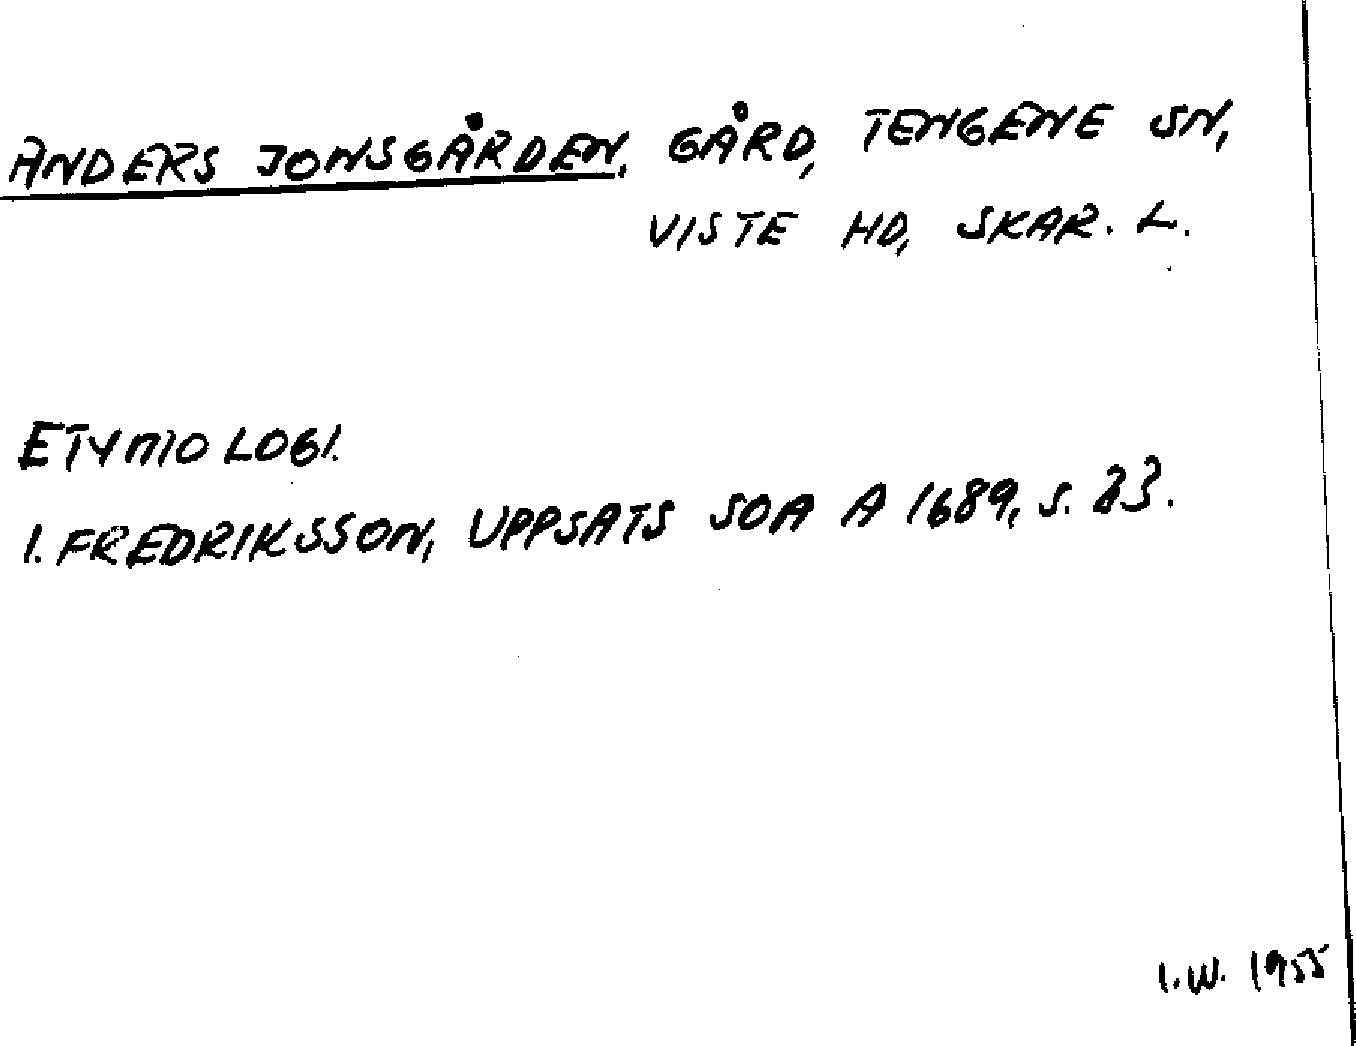 ANDERS JONSGÅRDEN, GÅRD, TENGENE SN,
VISTE HD, SKAR. L.
ETYMOLOGI.
I. FREDRIKSSON, UPPSATS SOA A 1689, S. 23.
I.W. 1955